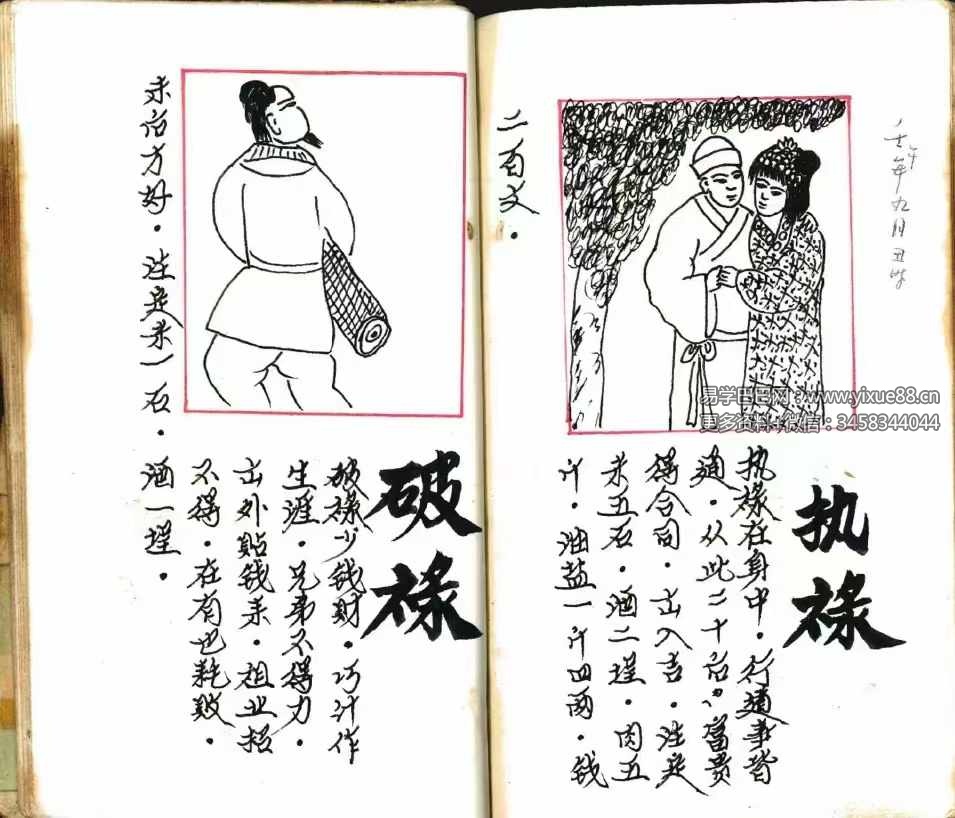 执禄
执禄在身中。行通事皆
通。从此二十后富贵
得合同。出入吉。注定
米五石。酒二埕。肉五
斤。油盐一斤四两。钱
二百文。
壬午年九月丑时
破禄
破禄少钱财。巧计作
生涯。兄弟不得力。
出外贴钱来。祖业招
不得。在有也耗败。
酒一埕。
未后方好。注定米一石。
易学巴巴网:www.yixue88.cn
更多资料+微信:3458344044